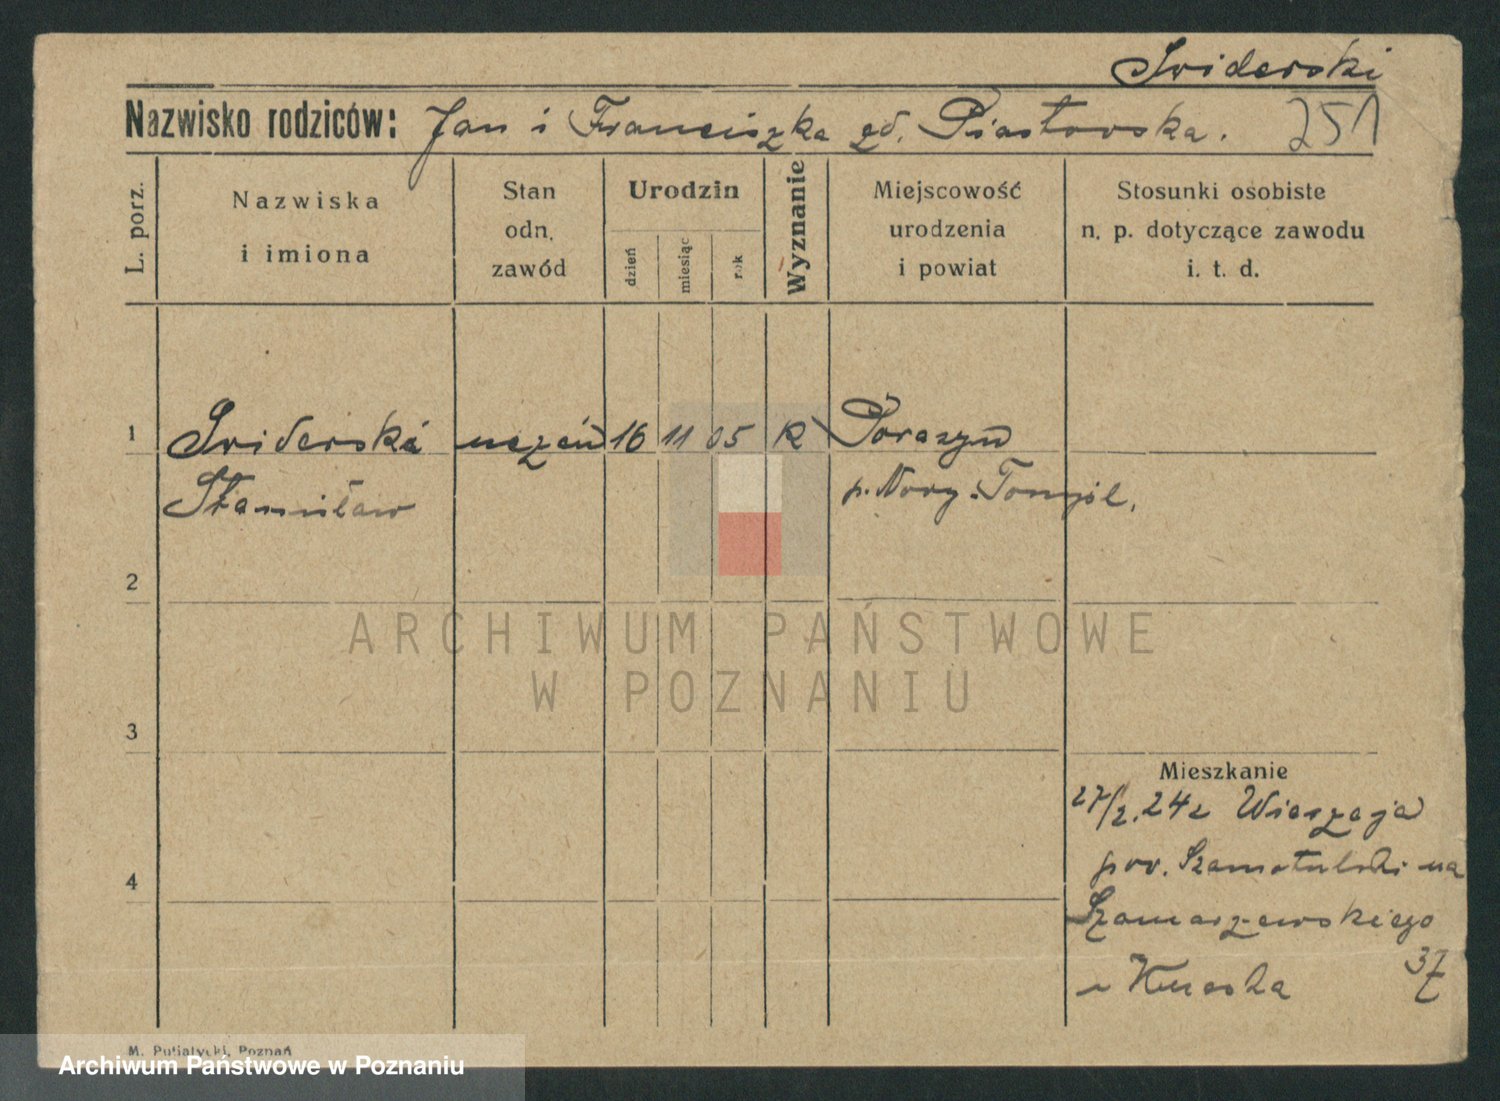 Sviderski
Nazwisko rodziców: Jan i Franciszka zd. Piastovska. 251
L. porz.
Nazwiska
i imiona
Stan
odn.
zawód
Urodzin
dzień
miesiąc
rok
Wyznanie
Miejscowość
urodzenia
i powiat
Stosunki osobiste
n. p. dotyczące zawodu
i. t. d.
1 Sviderski uczeń 16 11 05 R Porazyn
Stanisław p. Novy-Tomyśl.
2
ARCHIWUM PAŃSTWOWE
W POZNANIU
3
Mieszkanie
27/2.24 z
pov. Szamotulski na
4
Szamarzewskiego
37
M. Putiatycki, Poznań
Archiwum Państwowe w Poznaniu